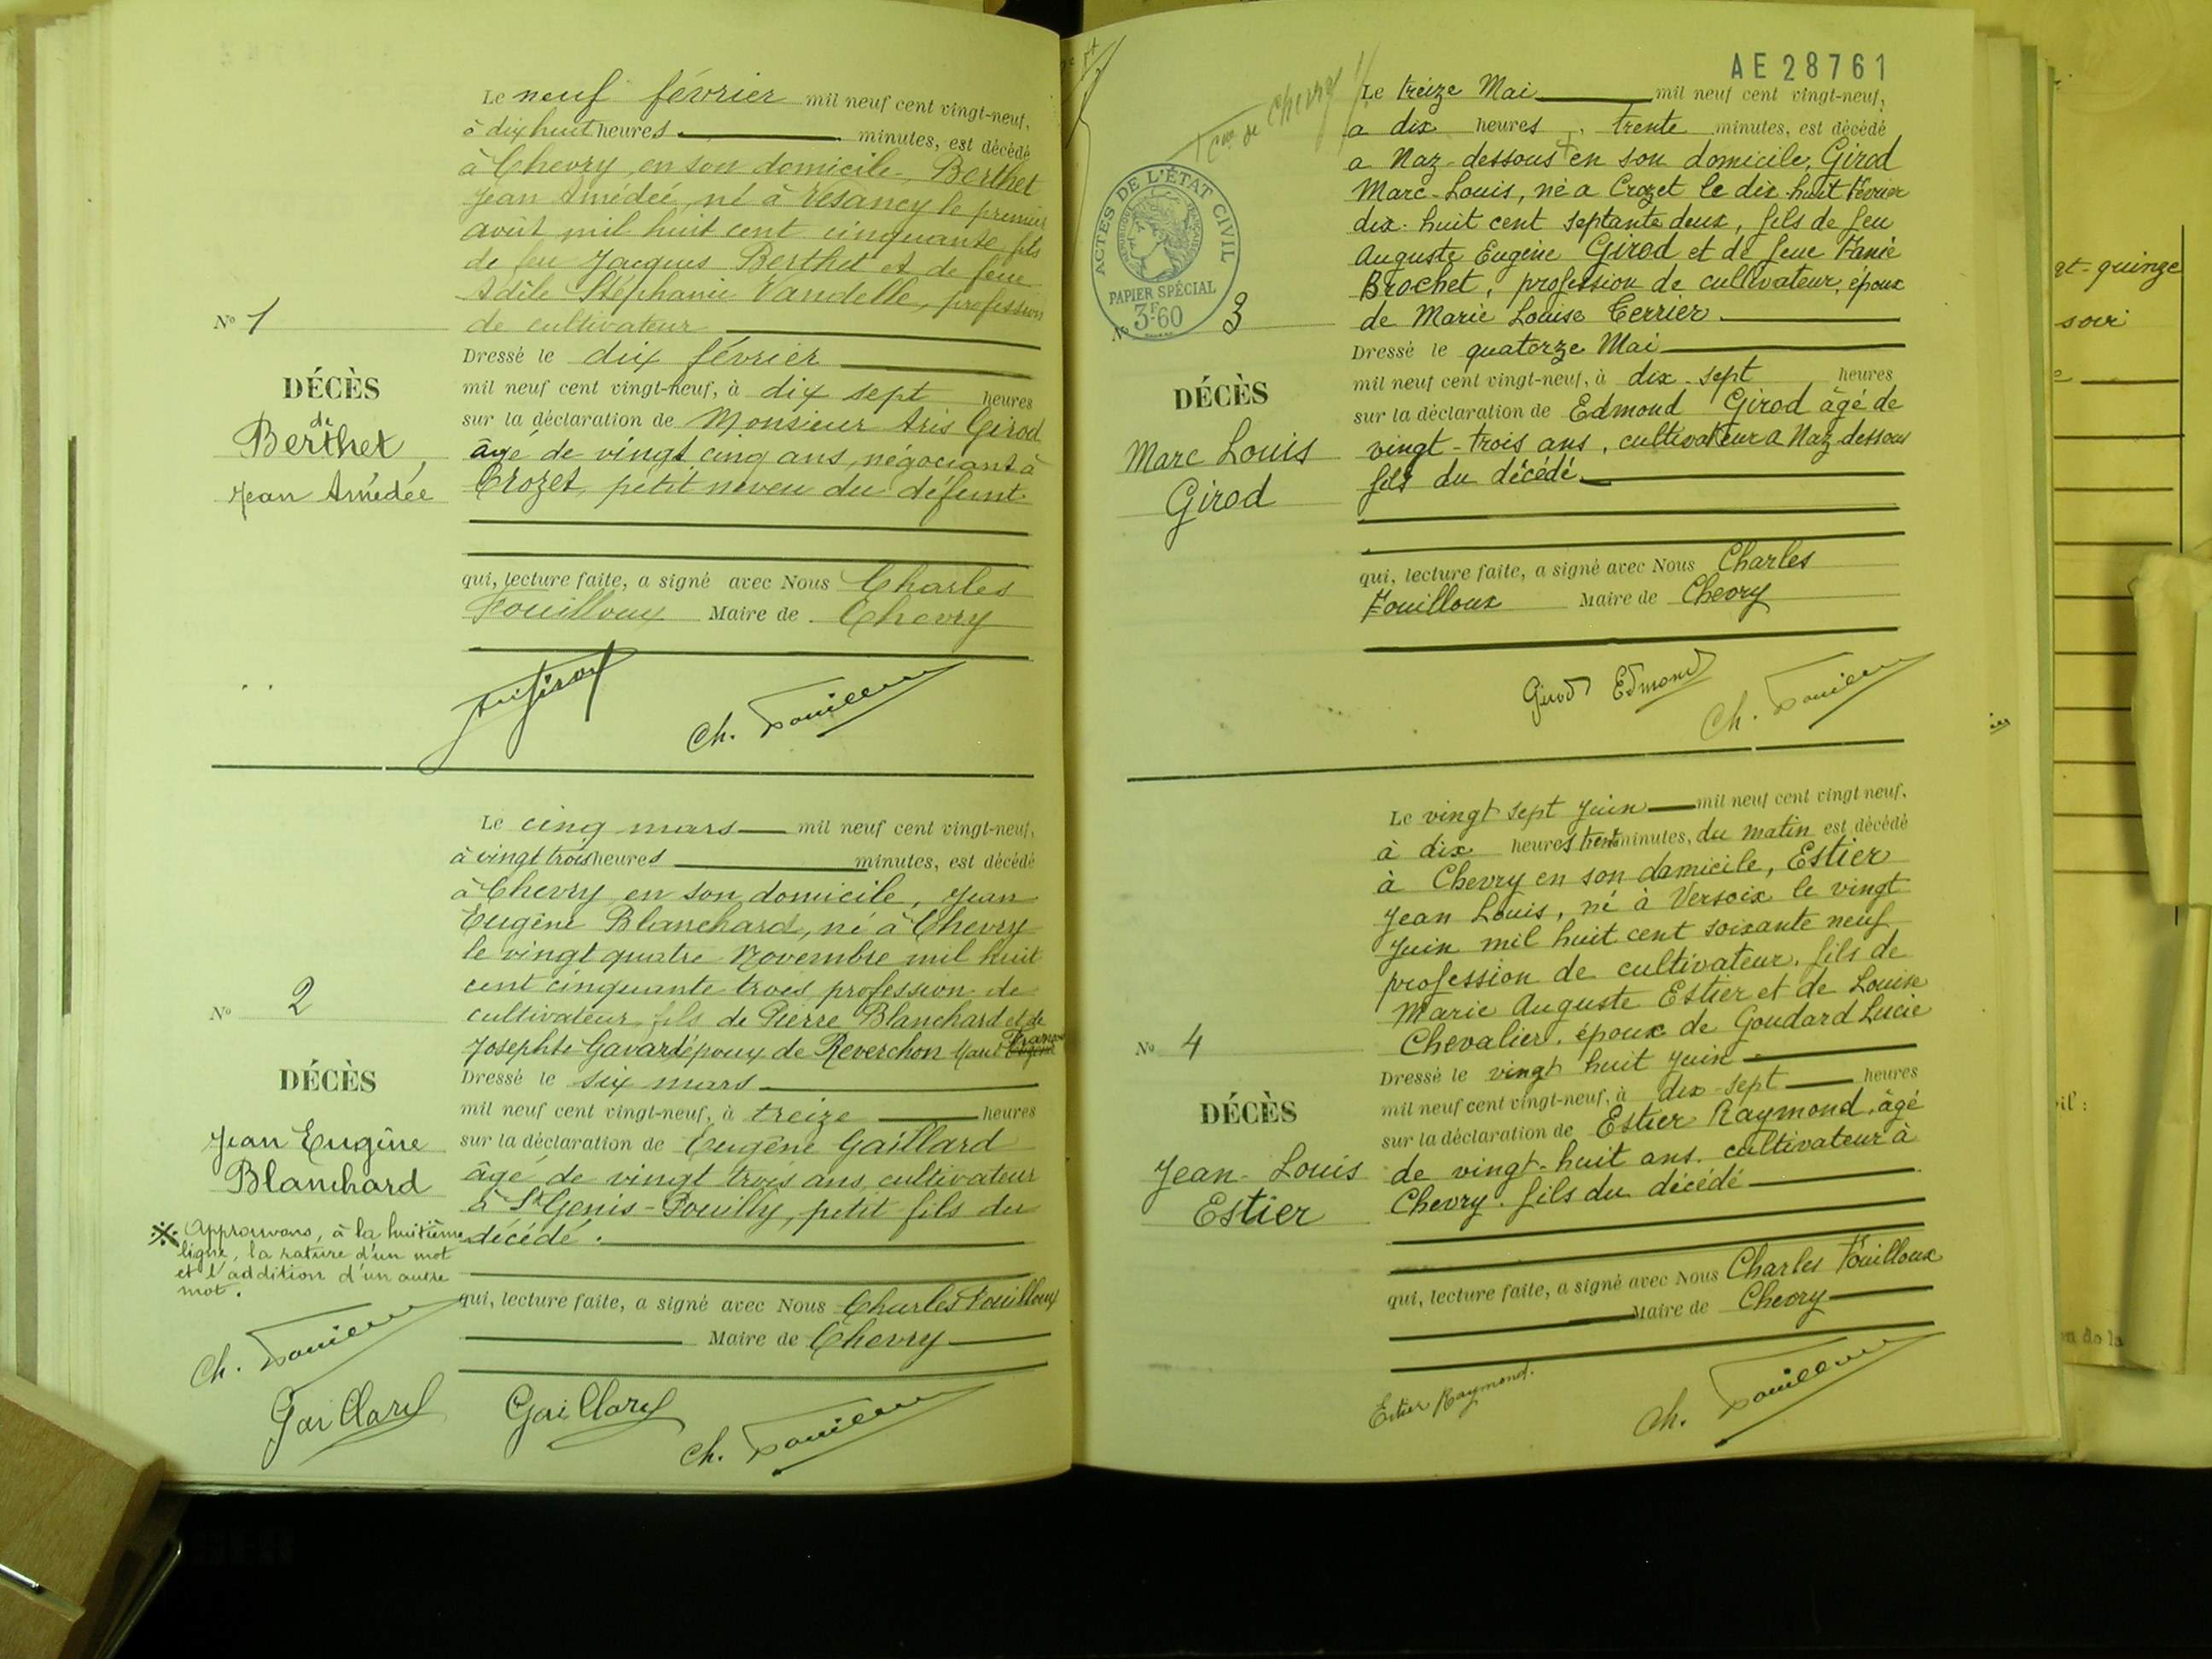 Le neuf février mil neuf cent vingt-neuf,
à dix huit heures minutes, est décédé
à Chevry en son domicile, Berthet
Jean Amédée, né à Vesancy le premier
août mil huit cent cinquante fils
de feu Jacques Berthet et de feue
Adèle Stéphanie Vandelle, profession
de cultivateur
No 1
Dressé le dix février
mil neuf cent vingt-neuf, à dix sept heures
sur la déclaration de Monsieur Aris Girod
âgé de vingt cinq ans, négociant à
Crozet, petit neveu du défunt.
DÉCÈS
de
Berthet,
Jean Amédée
qui, lecture faite, a signé avec Nous Charles
Fouilloux Maire de Chevry
Ch. Fouilloux
Le cinq mars mil neuf cent vingt-neuf,
à vingt trois heures minutes, est décédé
à Chevry en son domicile, Jean
Eugène Blanchard, né à Chevry
le vingt quatre Novembre mil huit
cent cinquante trois profession de
cultivateur, fils de Pierre Blanchard et de
Josephte Gavard époux de Reverchon
No 2
Dressé le six mars
mil neuf cent vingt-neuf, à treize heures
sur la déclaration de Eugène Gaillard
âgé de vingt trois ans, cultivateur
à St Genis-Pouilly, petit fils du
décédé.
DÉCÈS
Jean Eugène
Blanchard
※ Approuvons, à la huitième
ligne, la rature d'un mot
et l'addition d'un autre
mot.
qui, lecture faite, a signé avec Nous Charles Fouilloux
Maire de Chevry
Ch. Fouilloux
Gaillard
Gaillard
Ch. Fouilloux
AE 28761
Cne de Chevry
ACTES DE L'ÉTAT CIVIL
RÉPUBLIQUE FRANÇAISE
PAPIER SPÉCIAL
3F60
Le treize Mai mil neuf cent vingt-neuf,
a dix heures, trente minutes, est décédé
a Naz-dessous en son domicile, Girod
Marc-Louis, né a Crozet le dix-huit Février
dix-huit cent septante deux, fils de feu
Auguste Eugène Girod et de feue Fanie
Brochet, profession de cultivateur, époux
de Marie Louise Terrier.
No 3
Dressé le quatorze Mai
mil neuf cent vingt-neuf, à dix-sept heures
sur la déclaration de Edmond Girod âgé de
vingt-trois ans, cultivateur a Naz-dessous
fils du décédé.
DÉCÈS
Marc Louis
Girod
qui, lecture faite, a signé avec Nous Charles
Fouilloux Maire de Chevry
Girod Edmond
Ch. Fouilloux
Le vingt sept Juin mil neuf cent vingt neuf,
à dix heures trente minutes, du matin est décédé
à Chevry en son domicile, Estier
Jean Louis, né à Versoix le vingt
Juin mil huit cent soixante neuf
profession de cultivateur, fils de
Marie Auguste Estier et de Louise
Chevalier, époux de Goudard Lucie
No 4
Dressé le vingt huit Juin
mil neuf cent vingt-neuf, à dix-sept heures
sur la déclaration de Estier Raymond, âgé
de vingt-huit ans, cultivateur à
Chevry, fils du décédé
DÉCÈS
Jean-Louis
Estier
qui, lecture faite, a signé avec Nous Charles Fouilloux
Maire de Chevry
Estier Raymond.
Ch. Fouilloux
gt-quinze
soir
on de la